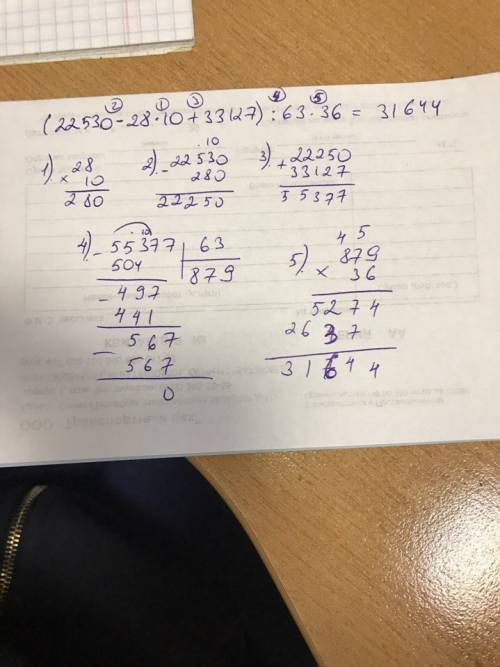 ② ① ③ ④ ⑤
(22530-28·10+33127):63·36 = 31644
1) 28
× 10
280
2) 22530
- 280
22250
3) 22250
+ 33127
55377
4) - 55377 | 63
504 879
- 497
441
- 567
567
0
4 5
5) 879
× 36
5274
2637
31644